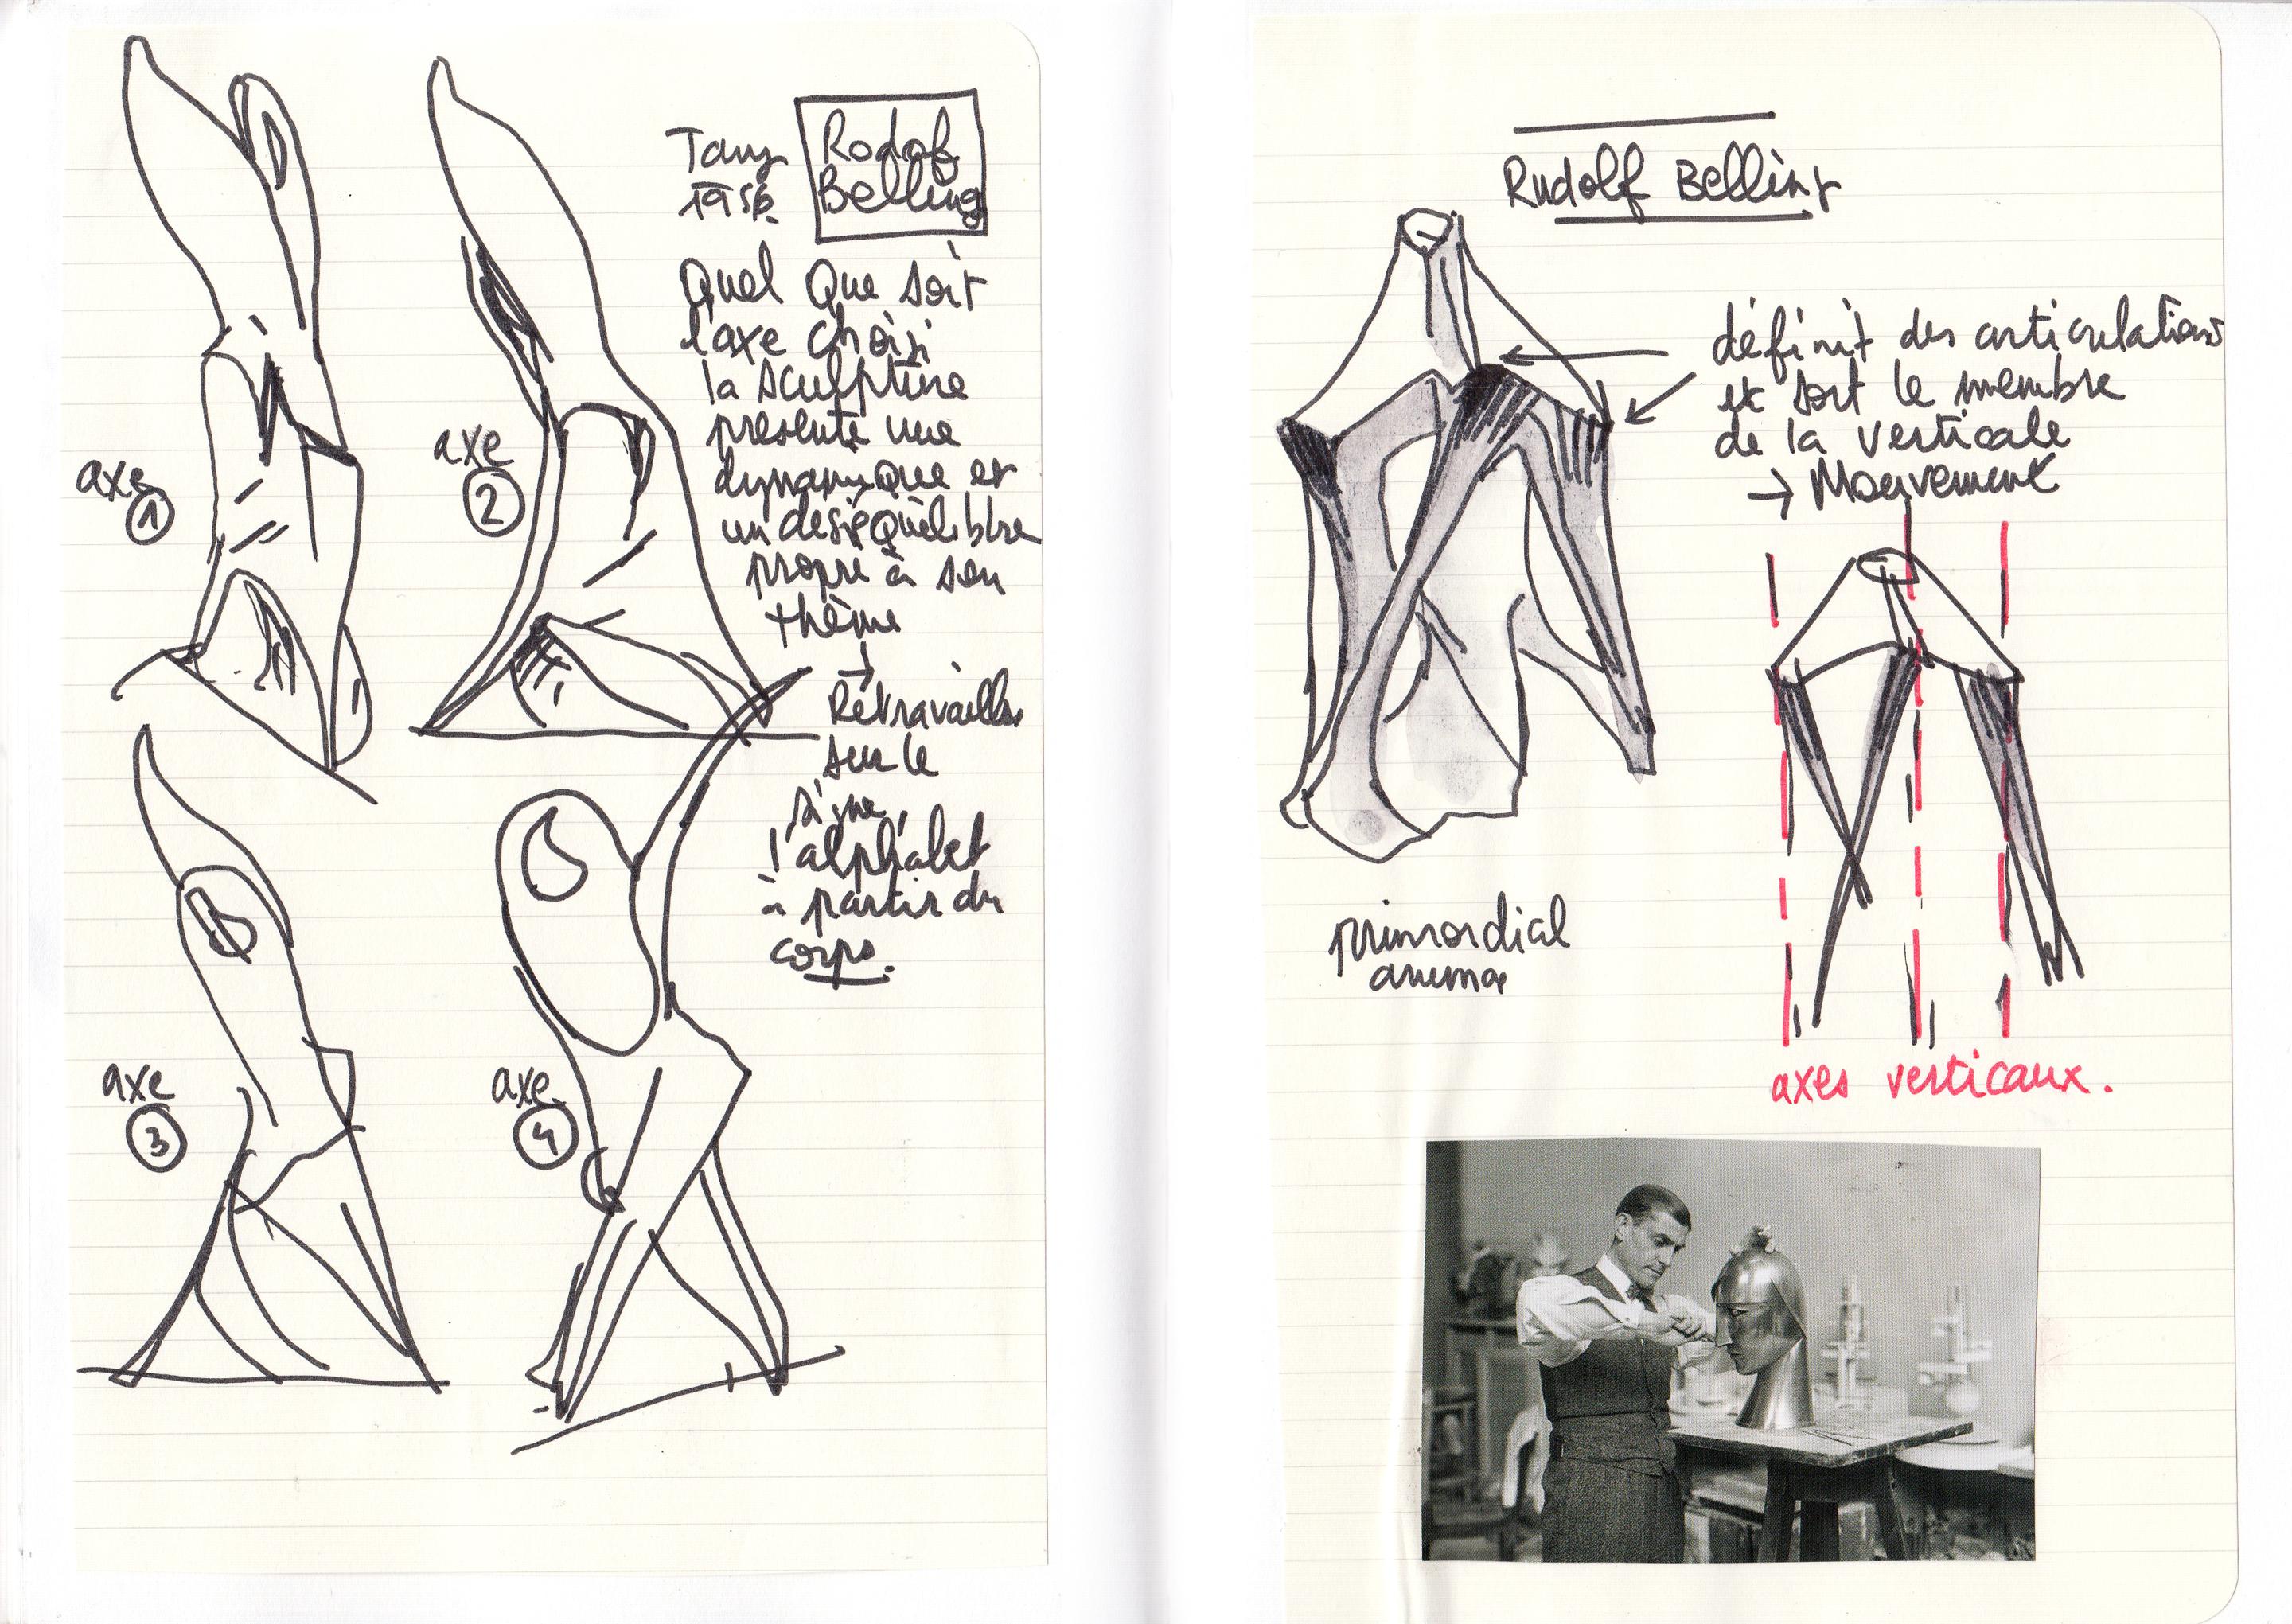 Tanz
1956.
Rodolf
Belling
Quel Que soit
l'axe choisi
la sculpture
présente une
dynamique et
un deséquilibre
propre à son
thème
→
Retravailler
sur le
signe,
l'alphabet
à partir du
corps.
axe
1
axe
2
axe
3
axe
4
Rudolf Belling
définit des articulations
et sort le membre
de la verticale
→ Mouvement
primordial
axes verticaux.